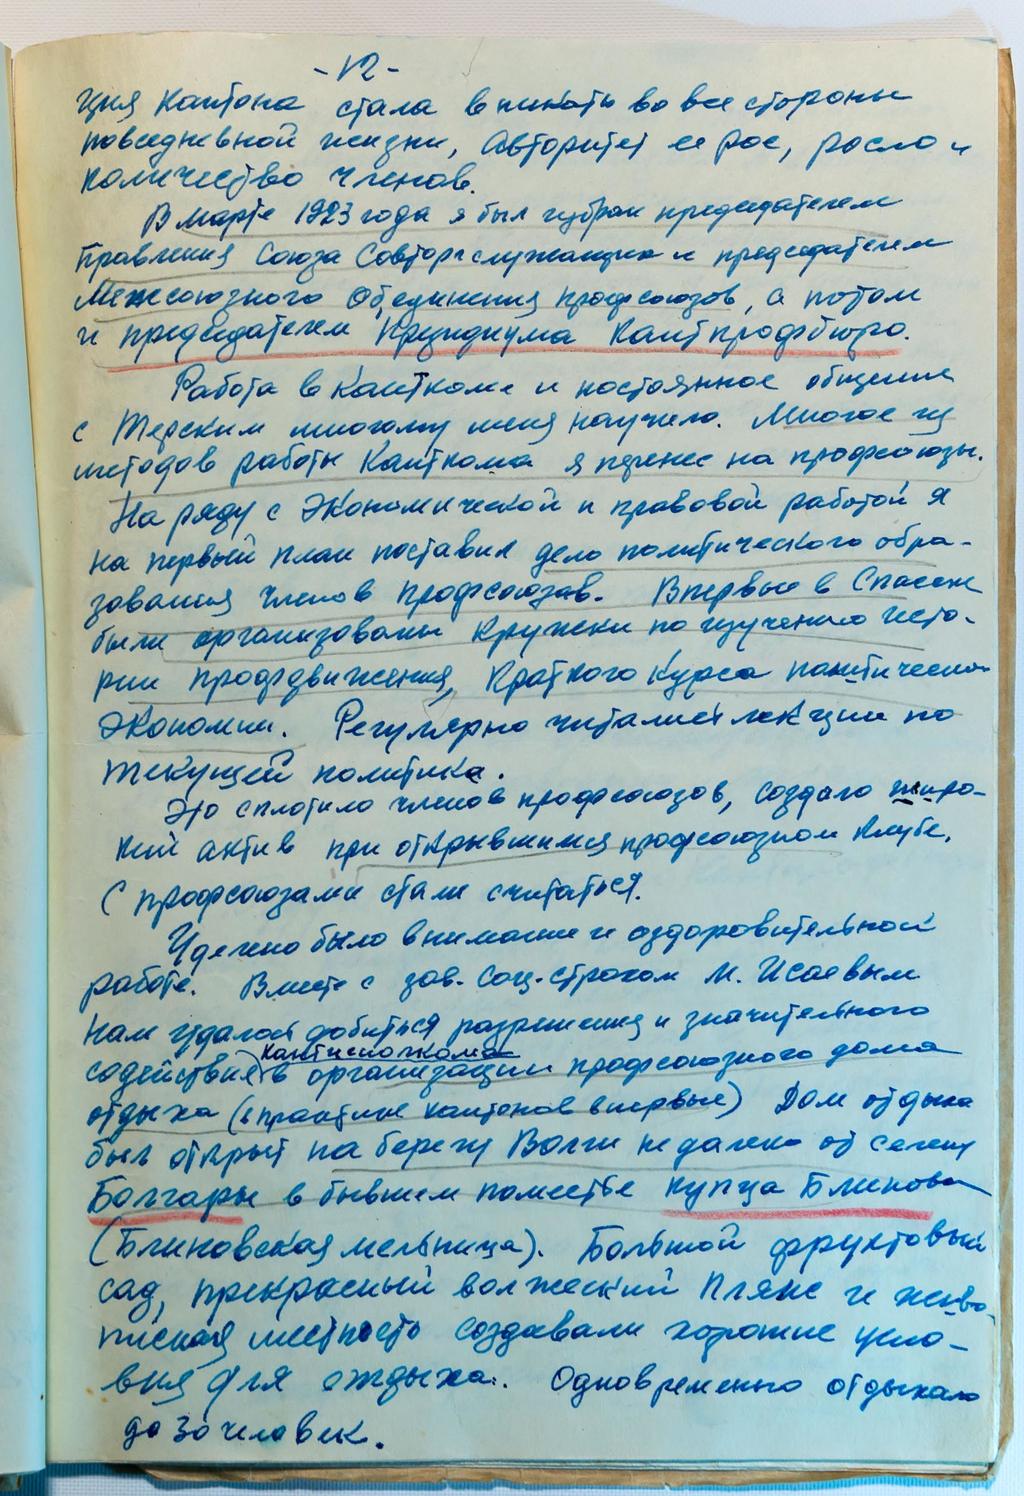 -12-
ция Кантона стала вникать во все стороны
повседневной жизни, авторитет ее рос, росло и
количество членов.
В марте 1923 года я был избран председателем
Правления Союза Совторгслужащих и председателем
Межсоюзного Объединения профсоюзов, а потом
и председателем Президиума Кантпрофбюро.
Работа в Канткоме и постоянное общение
с Терским многому меня научило. Многое из
методов работыКанткома я перенес на профсоюзы.
На ряду с экономической и правовой работой я
на первый план поставил дело политического обра-
зования членов профсоюзов. Впервые в Спасске
были организованы кружки по изучению исто-
рии профдвижения, краткого курса политической
экономии. Регулярно читались лекции по
текущей политике.
Это сплотило членов профсоюзов, создало широ-
кий актив при открывшимся профсоюзном клубе.
С профсоюзами стали считаться.
Уделено было внимание и оздоровительной
работе. Вместе с зав. соц-страхом М. Исаевым
нам удалось добиться разрешения и значительного
содействия Кантисполкома в организации профсоюзного дома
отдыха (в практике кантонов впервые) Дом отдыха
был открыт на берегу Волги недалеко от селения
Болгары в бывшем поместье купца Блинова
(Блиновская мельница). Большой фруктовый
сад, прекрасный волжский пляж и живо
писная местность создавали хорошие усло-
вия для отдыха. Одновременно отдыхало
до 30 человек.